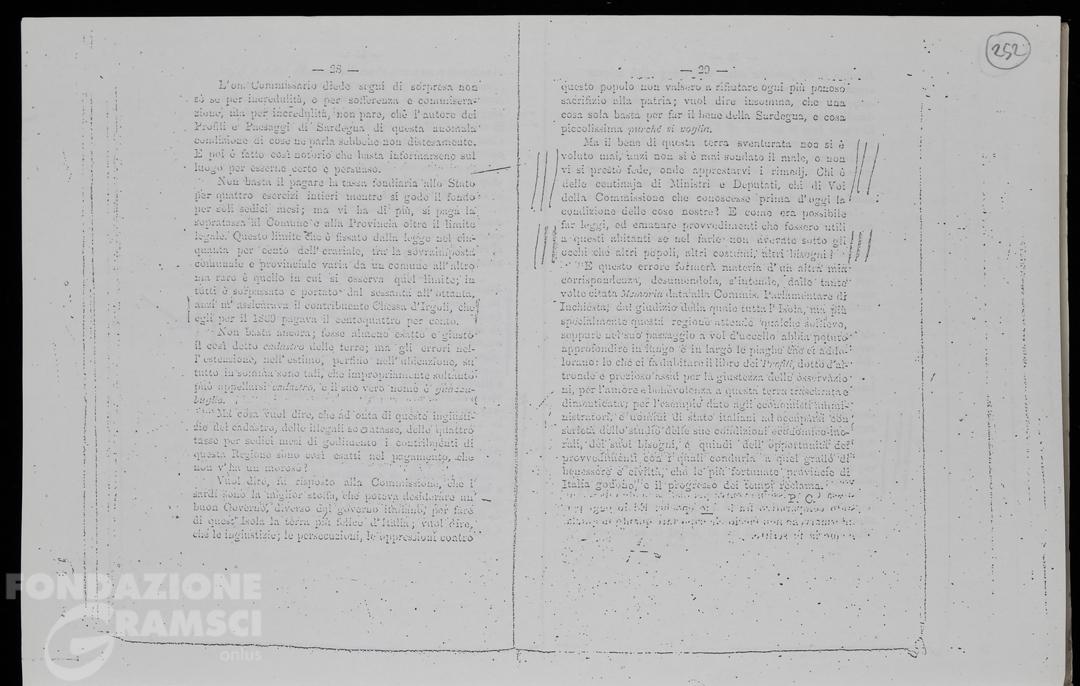 252
— 28 —
L'on. Commissario diede segni di sorpresa non
so se per incredulità, o per sofferenza e commisera-
zione, ma per incredulità, non pare, chè l'autore dei
Profili e Paesaggi di Sardegna di questa anomala
condizione di cose ne parla sebbene non distesamente.
E poi è fatto così notorio che basta informarsene sul
luogo per esserne certo e persuaso.
Non basta il pagare la tassa fondiaria allo Stato
per quattro esercizi intieri mentre si gode il fondo
per soli sedici mesi; ma vi ha di più, si paga la
sopratassa al Comune e alla Provincia oltre il limite
legale. Questo limite che è fissato dalla legge nel cin-
quanta per cento dell'erariale, tra la sovraimposta
comunale e provinciale varia da un comune all'altro
ma raro è quello in cui si osserva quel limite; in
tutti è sorpassato e portato dai sessanta all'ottanta,
anzi m'assicurava il contribuente Chessa d'Irgoli, che
egli per il 1869 pagava il centoquattro per cento.
Non basta ancora; fosse almeno esatto e giusto
il così detto cadastro delle terre; ma gli errori nel-
l'estensione, nell'estimo, perfino nell'ubicazione, su
tutto in somma sono tali, che impropriamente soltanto
può appellarsi cadastro, e il suo vero nome è guazza-
buglio.
Ma cosa vuol dire, che ad onta di queste ingiusti-
zie del cadastro, delle illegali sovratasse, delle quattro
tasse per sedici mesi di godimento i contribuenti di
questa Regione sono così esatti nel pagamento, che
non v'ha un moroso?
Vuol dire, fu risposto alla Commissione, che i
sardi sono la miglior stoffa, che poteva desiderare un
buon Governo, diverso dal governo italiano, per fare
di quest'Isola la terra più felice d'Italia; vuol dire,
che le ingiustizie; le persecuzioni, le oppressioni contro
— 29 —
questo popolo non valsero a rifiutare ogni più penoso
sacrifizio alla patria; vuol dire insomma, che una
cosa sola basta per far il bene della Sardegna, e cosa
piccolissima purchè si voglia.
Ma il bene di questa terra sventurata non si è
voluto mai, anzi non si è mai sondato il male, o non
vi si prestò fede, onde apprestarvi i rimedj. Chi è
delle centinaja di Ministri e Deputati, chi di Voi
della Commissione che conoscesse prima d'oggi la
condizione delle cose nostre? E come era possibile
far leggi, ed emanare provvedimenti che fossero utili
a questi abitanti se nel farle non averate sotto gli
occhi che altri popoli, altri costumi, altri bisogni?
E questo errore formerà materia d'un altra mia
corrispondenza, desumendola, s'intende, dalle tante
volte citata Memoria data alla Commis. Parlamentare di
Inchiesta; dal giudizio della quale tutta l'Isola, ma più
specialmente questa regione attende qualche sollievo,
seppure nel suo passaggio a vol d'uccello abbia potuto
approfondire in lungo e in largo le piaghe che ci addo-
lorano: lo che ci fa dubitare il libro dei Profili, dotto d'al-
tronde e prezioso assai per la giustezza delle osservazio
ni, per l'amore e benevolenza a questa terra trascurata e
dimenticata; per l'esempio dato agli economisti ammi-
nistratori, e uomini di stato italiani ad occuparsi con
serietà dello studio delle sue condizioni economico-mo-
rali, dei suoi bisogni, e quindi dell'opportunità dei
provvedimenti con i quali condurla a quel grado di
benessere e civiltà, che le più fortunate provincie di
Italia godono, e il progresso dei tempi reclama.
P. C.
FONDAZIONE
GRAMSCI
onlus